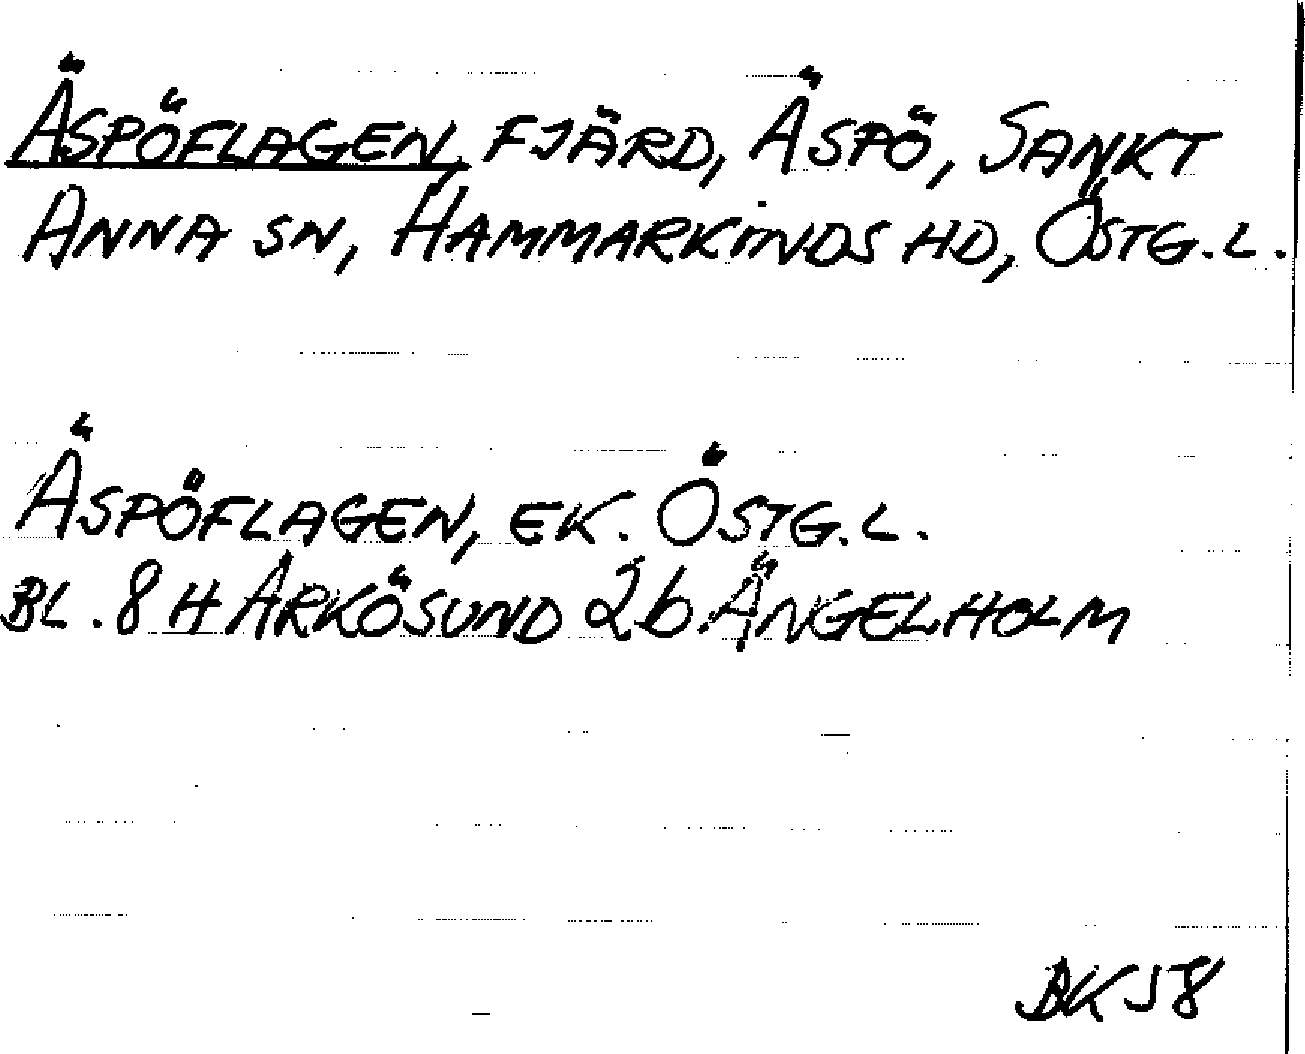 ÄSPÖFLAGEN, FJÄRD, ÄSPÖ, SANKT
ANNA SN, HAMMARKINDS HD, ÖSTG. L.
ÄSPÖFLAGEN, EK. ÖSTG. L.
BL. 8 H ARKÖSUND 2b ÄNGELHOLM
BK 58